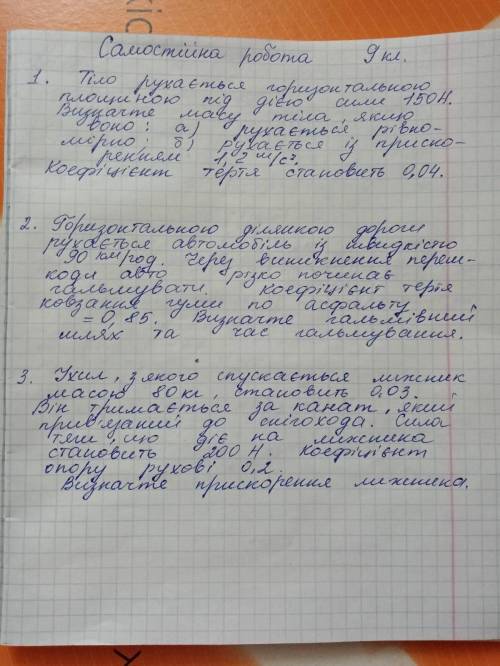 Самостійна робота 9 кл.
1. Тіло рухається горизонтальною
площиною під дією сили 150 Н.
Визначте масу тіла, якщо
воно: а) рухається рівно-
мірно, б) рухається із приско-
ренням 1,2 м/с².
Коефіцієнт тертя становить 0,04.
2. Горизонтальною ділянкою дороги
рухається автомобіль із швидкістю
90 км/год. Через виникнення переш-
коди авто різко починає
гальмувати. Коефіцієнт тертя
ковзання гуми по асфальту
= 0,85. Визначте гальмівний
шлях та час гальмування.
3. Ухил, з якого спускається лижник
масою 80 кг, становить 0,03.
Він тримається за канат, який
прив'язаний до снігохода. Сила
тяги, що діє на лижника
становить 200 Н. Коефіцієнт
опору рухові 0,2.
Визначте прискорення лижника.